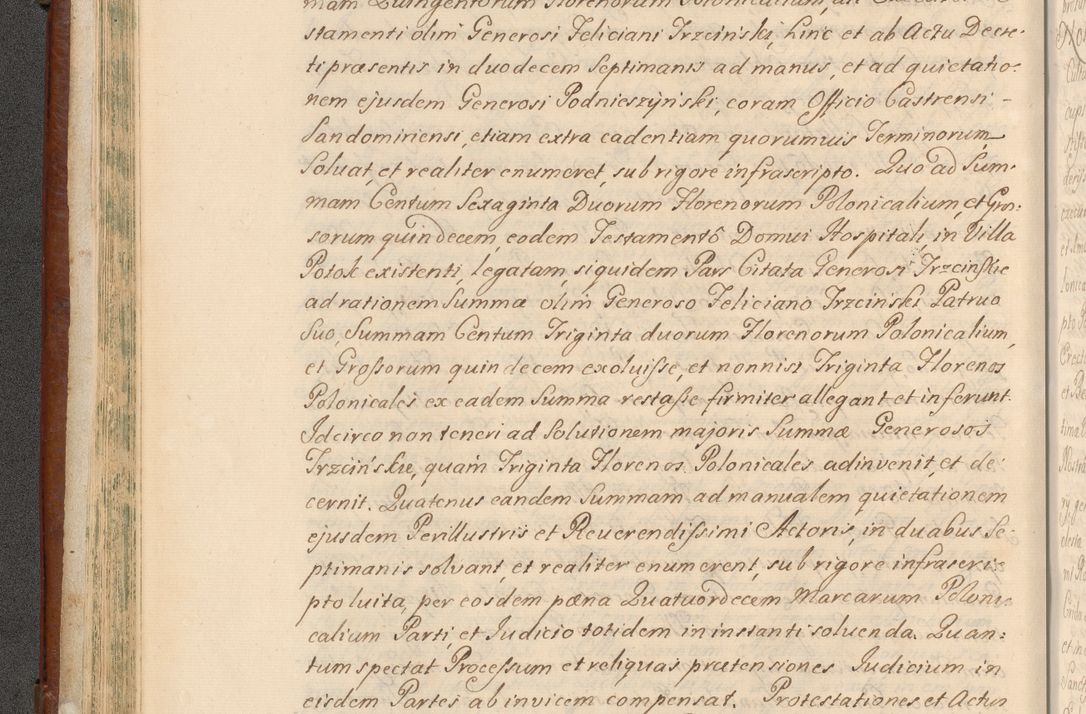 mam Quingentorum Florenorum Polonicalium,
stamenti olim Generosi Feliciani Trzcinski, hinc et ab Actu Decre-
ti præsentis in duodecem Septimanis ad manus, et ad quietatio-
nem ejusdem Generosi Podnieszyński, coram Officio Castrensi -
Sandomiriensi, etiam extra cadentiam quorumuis Terminorum
Soluat, et realiter enumeret, sub rigore infrascripto. Quo ad Sum-
mam Centum Sexaginta Duorum Florenorum Polonicalium, et Gros-
sorum quindecem, eodem Testamentô Domui Hospitali, in Villa
Potok existenti, legatam, siquidem Pars Citata Generosi Trzcinskie
ad rationem Summæ olim Generoso Feliciano Trzcinski Patruo
Suo, Summam Centum Triginta duorum Florenorum Polonicalium,
et Grossorum quindecem exoluisse, et nonnisi Triginta Florenos
Polonicales ex eadem Summa restasse firmiter allegant et inferunt.
Idcirco non teneri ad Solutionem majoris Summæ Generosos
Trzcińskie, quam Triginta Florenos Polonicales adinvenit, et de-
cernit. Quatenus eandem Summam ad manualem quietationem
ejusdem Perillustris et Reuerendissimi Actoris, in duabus Se-
ptimanis solvant, et realiter enumerent, sub rigore infrascri-
pto luita, per eosdem pæna Quatuordecem Marcarum Poloni-
calium Parti, et Iudicio totidem in instanti soluenda. Quan-
tum spectat Processum et reliquas prætensiones Iudicium in
eisdem Partes ab invicem compensat. Protestationes et Actus